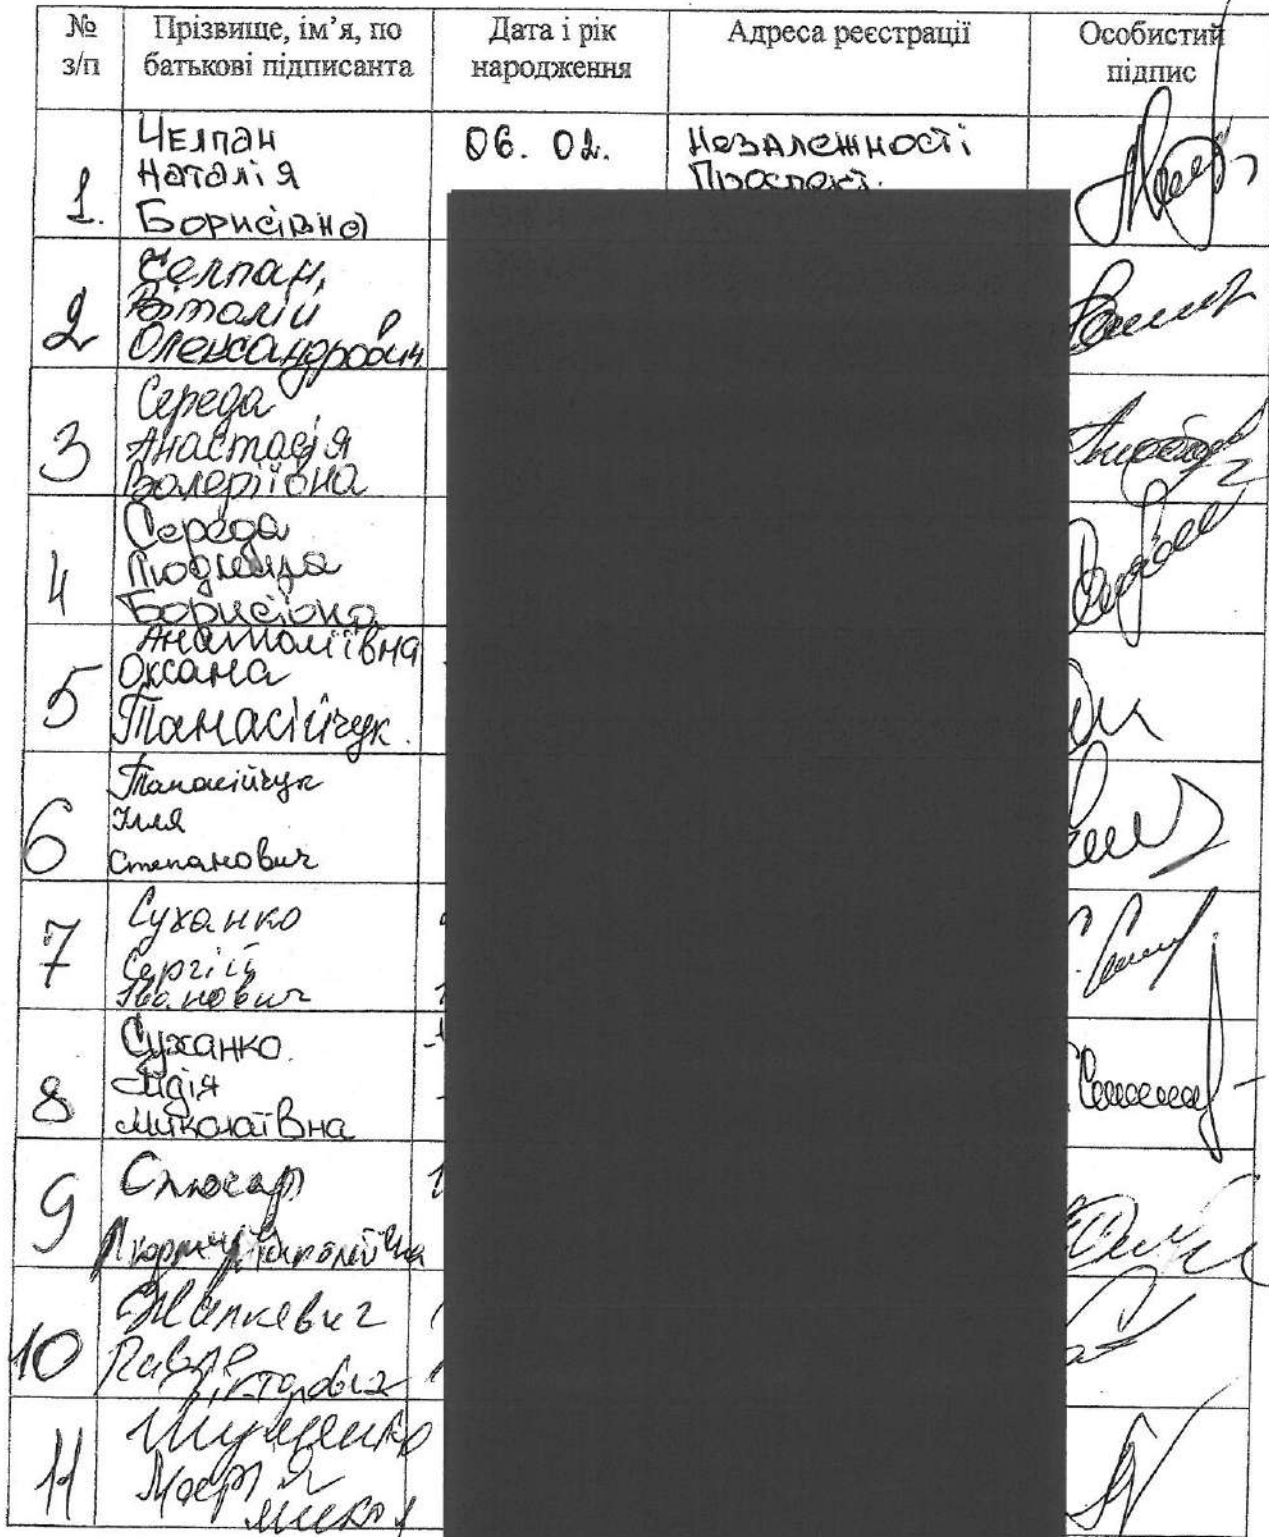 № з/п
Прізвище, ім’я, по батькові підписанта
Дата і рік народження
Адреса реєстрації
Особистий підпис
1.
Челпан
Наталія
Борисівна
06. 02.
Незалежності
Проспект.
2
Челпан,
Віталій
Олександрович
3
Середа
Анастасія
Валеріївна
4
Середа
Людмила
Борисівна
5
Анатоліївна
Оксана
Танасійчук.
6
Танасійчук
Ілля
Степанович
7
Суханко
Сергій
Іванович
8
Суханко.
Лідія
Миколаївна
9
Слюсар
10
Павло
Вікторович
11
Шуменко
Марія
Микол